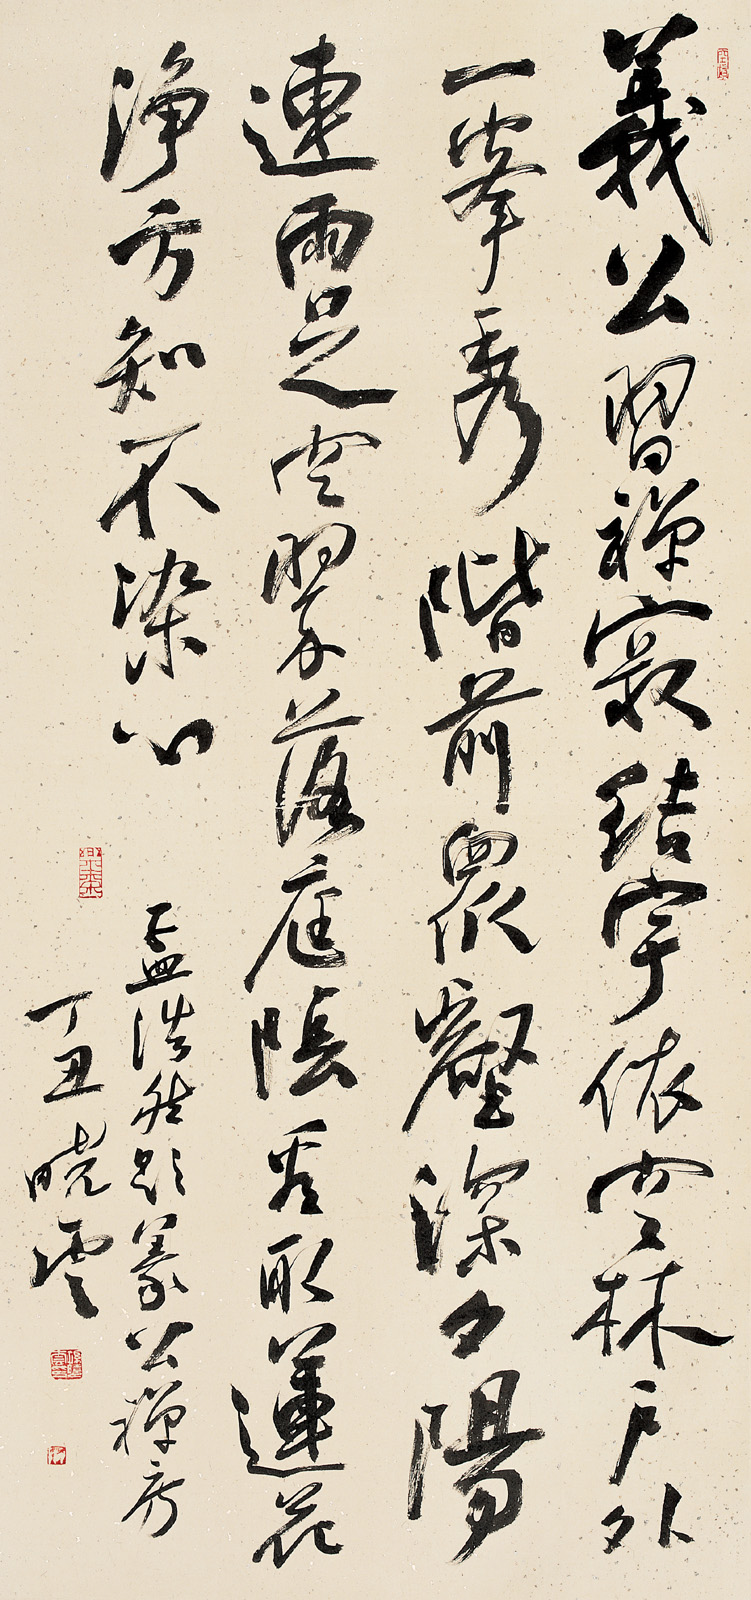 義公習禪寂結宇依空林戶外
一峯秀階前衆壑深夕陽
連雨足空翠落庭陰看取蓮花
淨方知不染心
孟浩然題義公禪房
丁丑曉雲